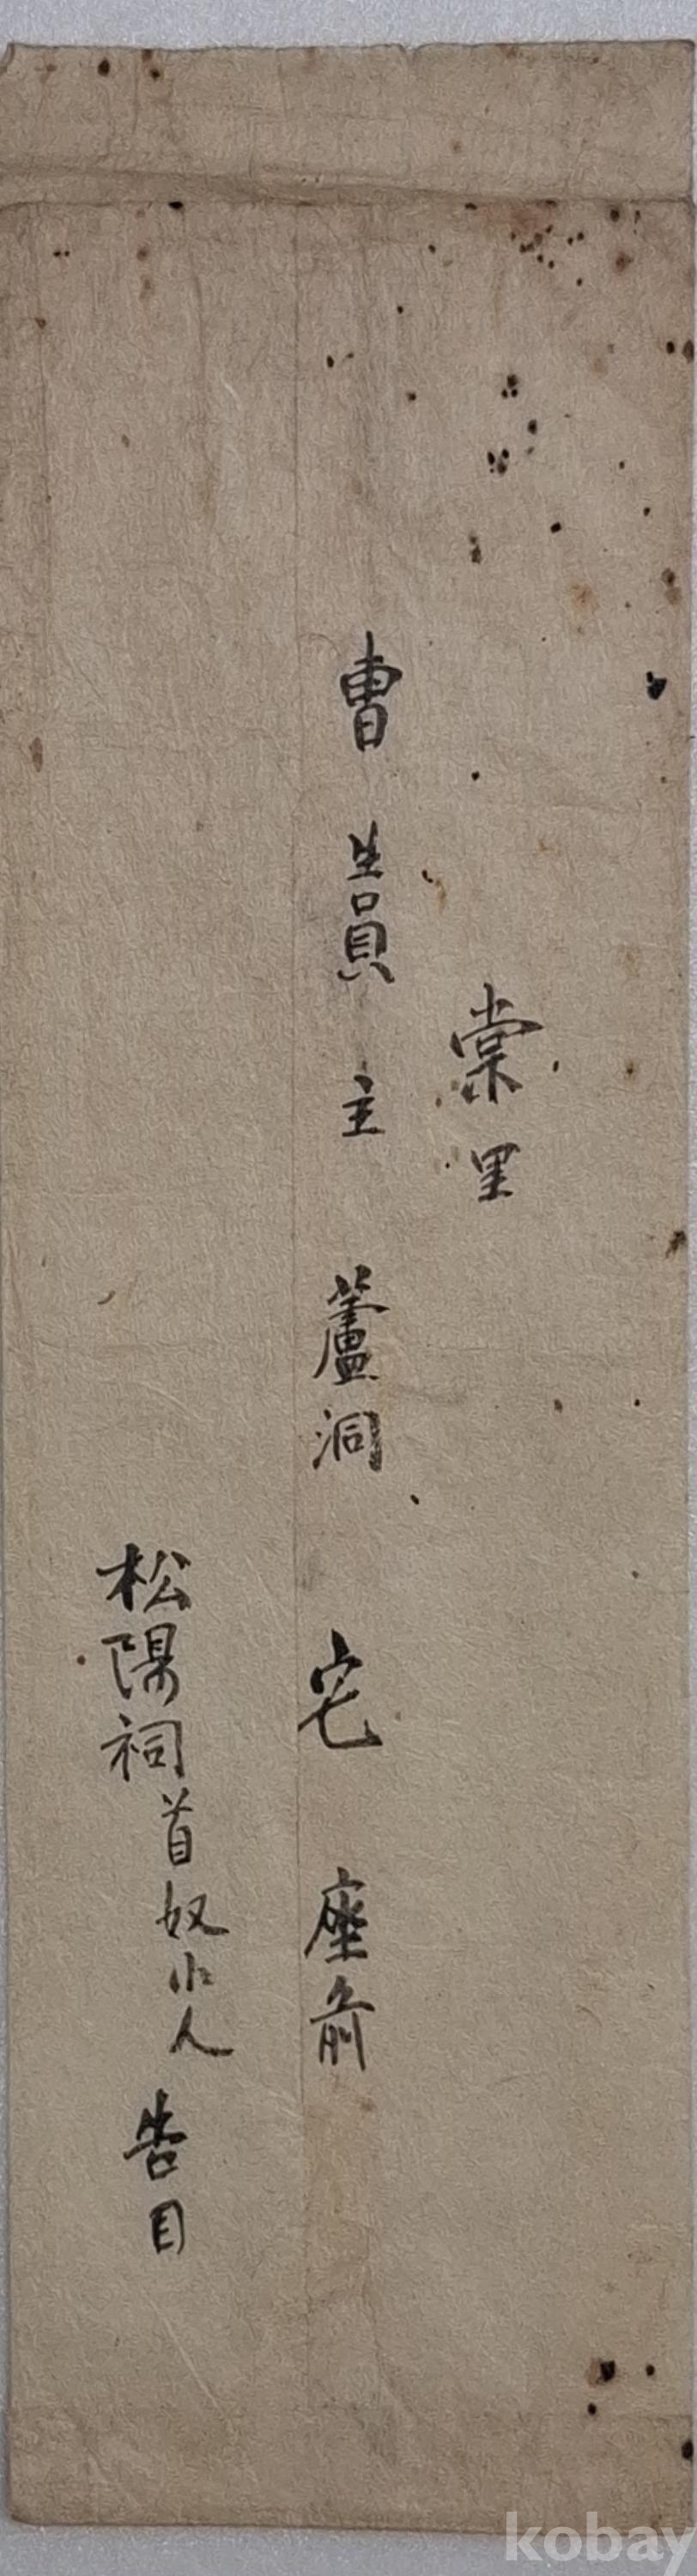 棠里
曺生員主蘆洞宅座前
松陽祠首奴小人告目
kobay